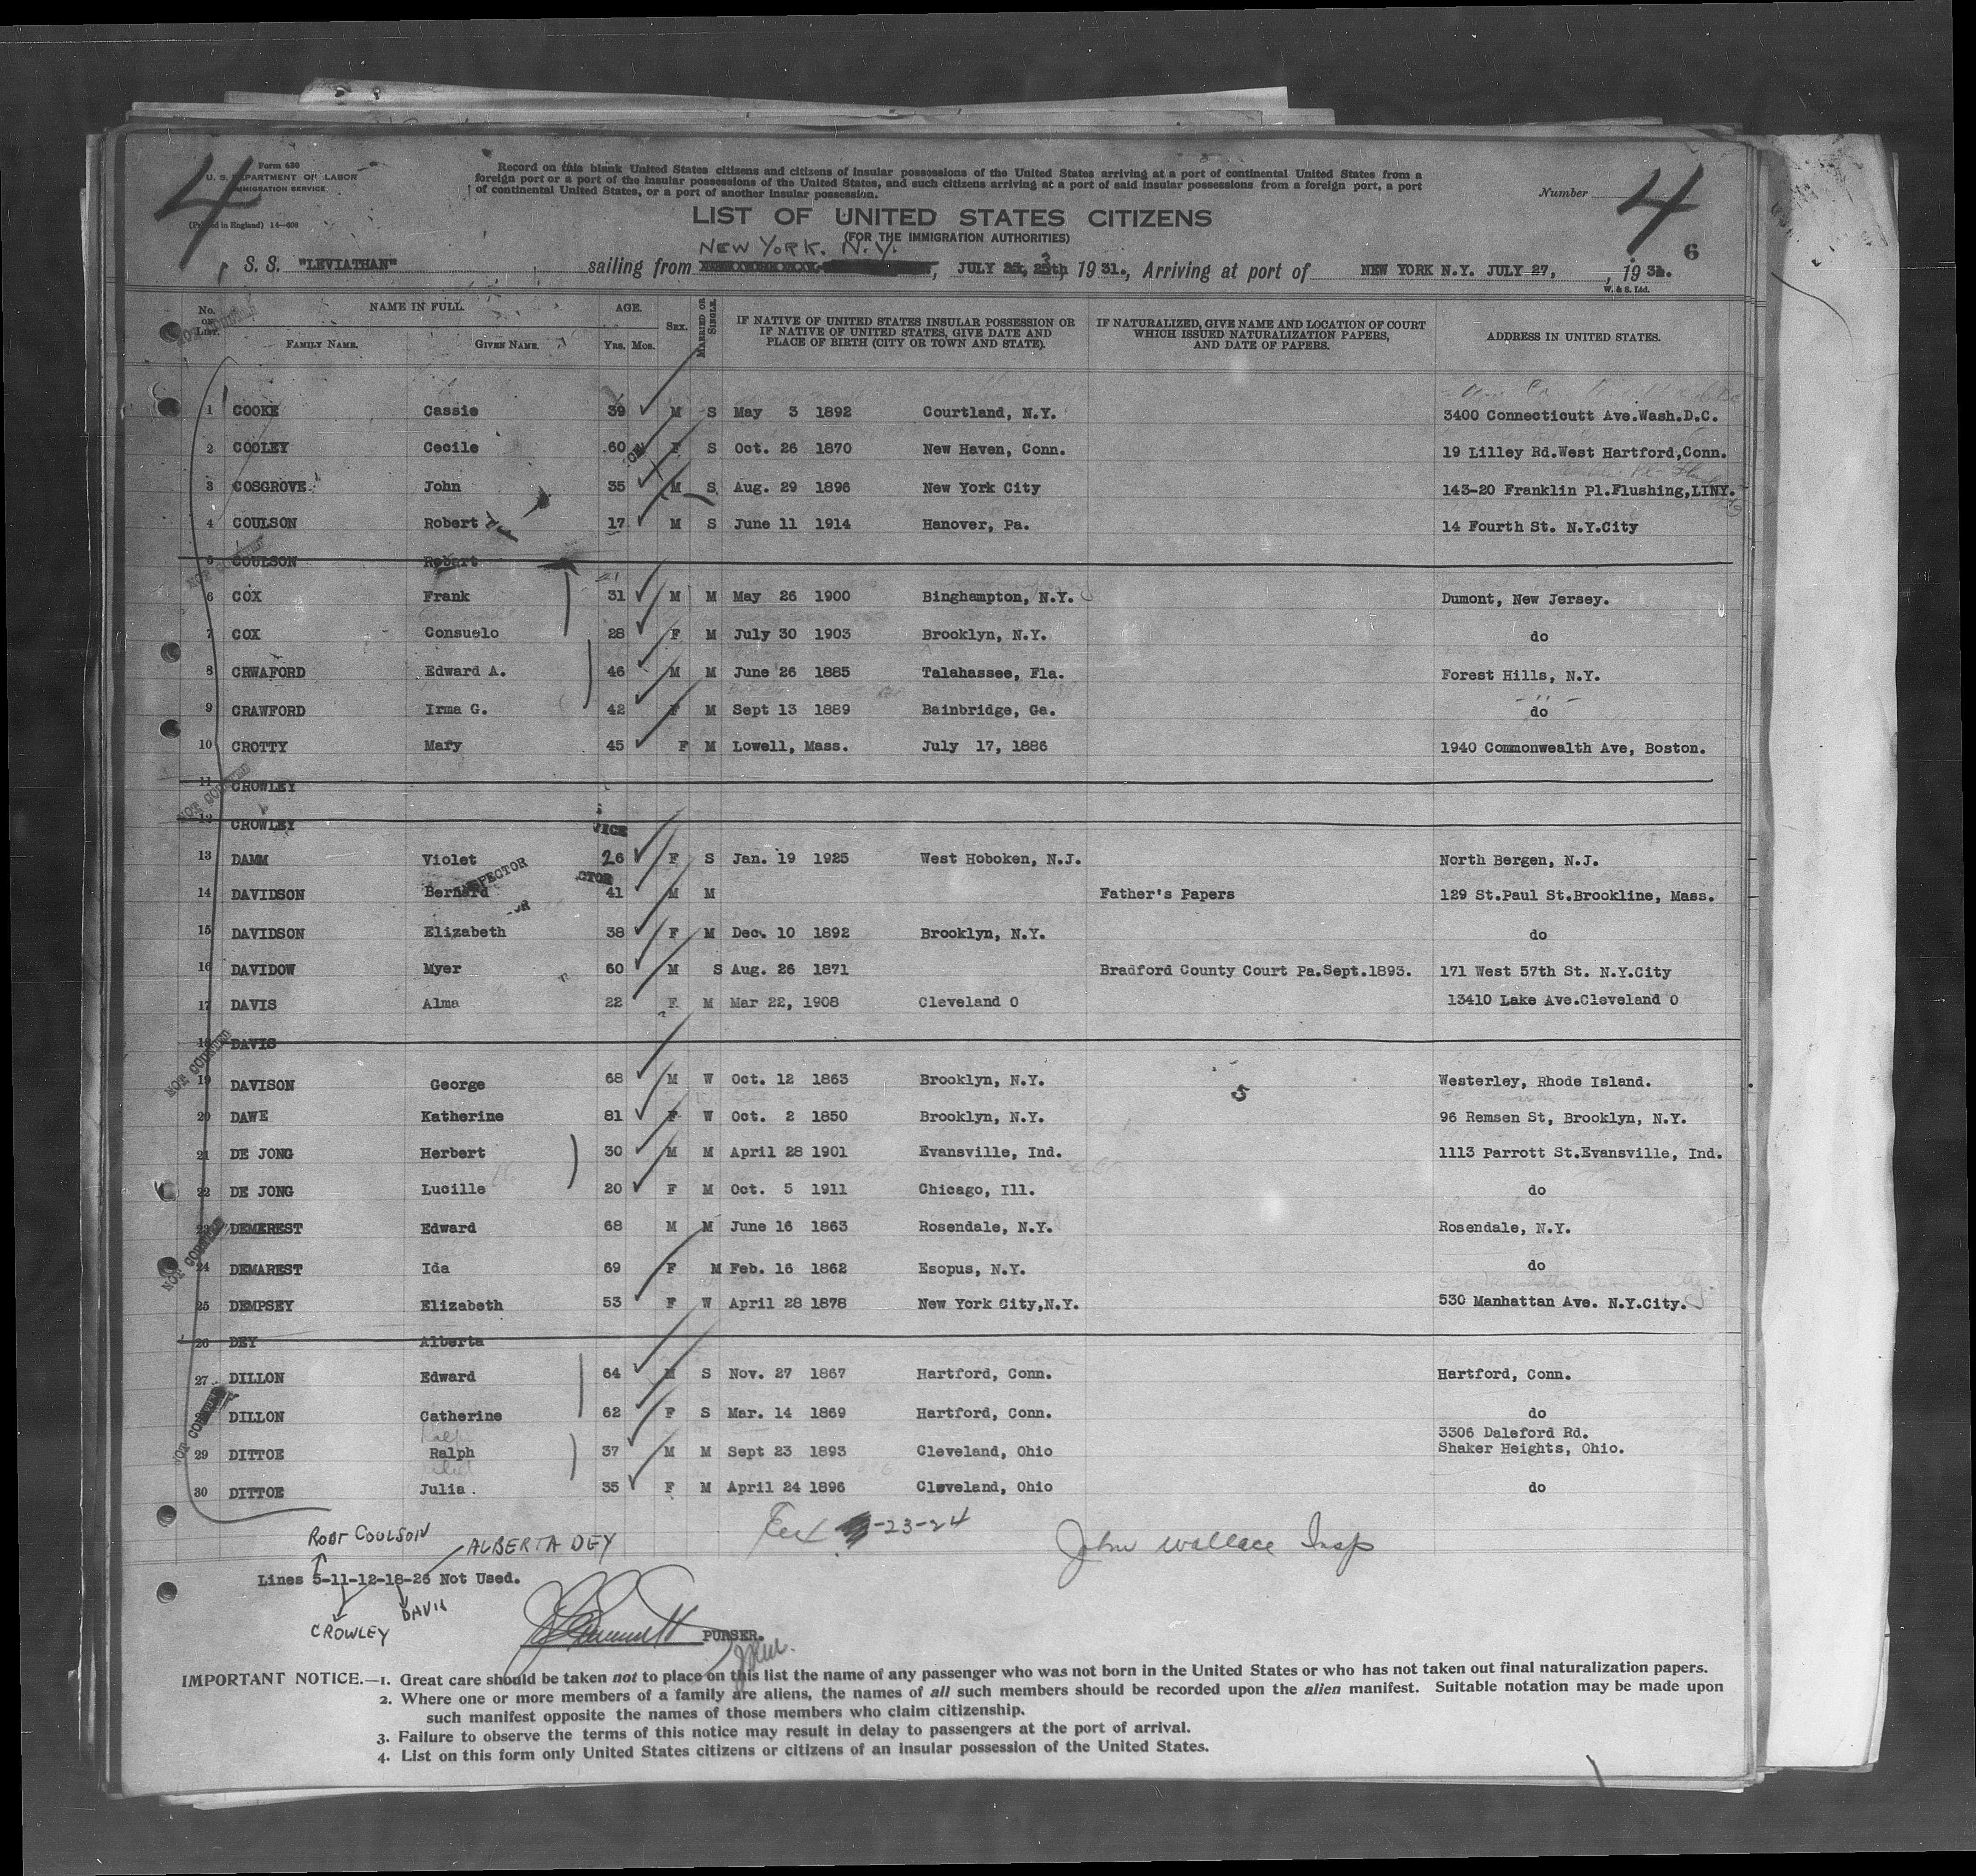 4
Form 630
U. S. DEPARTMENT OF LABOR
IMMIGRATION SERVICE
(Printed in England) 14—608
Record on this blank United States citizens and citizens of insular possessions of the United States arriving at a port of continental United States from a
foreign port or a port of the insular possessions of the United States, and such citizens arriving at a port of said insular possessions from a foreign port, a port
of continental United States, or a port of another insular possession.
Number 4
LIST OF UNITED STATES CITIZENS
(FOR THE IMMIGRATION AUTHORITIES)
NEW YORK. N.Y.
6
S. S. "LEVIATHAN" sailing from , JULY 1931., Arriving at port of NEW YORK N.Y. JULY 27, , 1931.
W. & S. Ltd.
No. on List. NAME IN FULL. AGE. Sex. Married or Single. IF NATIVE OF UNITED STATES INSULAR POSSESSION OR IF NATIVE OF UNITED STATES, GIVE DATE AND PLACE OF BIRTH (CITY OR TOWN AND STATE). IF NATURALIZED, GIVE NAME AND LOCATION OF COURT WHICH ISSUED NATURALIZATION PAPERS, AND DATE OF PAPERS. ADDRESS IN UNITED STATES.
Family Name. Given Name. Yrs. Mos.
1 COOKE Cassie 39 M S May 3 1892 Courtland, N.Y. 3400 Connecticutt Ave.Wash.D.C.
2 COOLEY Cecile 60 F S Oct. 26 1870 New Haven, Conn. 19 Lilley Rd.West Hartford,Conn.
3 COSGROVE John 35 M S Aug. 29 1896 New York City 143-20 Franklin Pl.Flushing,LINY.
4 COULSON Robert 17 M S June 11 1914 Hanover, Pa. 14 Fourth St. N.Y.City
5 COULSON Robert
6 COX Frank 31 M M May 26 1900 Binghampton, N.Y. Dumont, New Jersey.
7 COX Consuelo 28 F M July 30 1903 Brooklyn, N.Y. do
8 CRWAFORD Edward A. 46 M M June 26 1885 Talahassee, Fla. Forest Hills, N.Y.
9 CRAWFORD Irma G. 42 F M Sept 13 1889 Bainbridge, Ga. do
10 CROTTY Mary 45 F M Lowell, Mass. July 17, 1886 1940 Commonwealth Ave, Boston.
11 CROWLEY
12 CROWLEY
13 DAMM Violet 26 F S Jan. 19 1925 West Hoboken, N.J. North Bergen, N.J.
14 DAVIDSON Bernard 41 M M Father's Papers 129 St.Paul St.Brookline, Mass.
15 DAVIDSON Elizabeth 38 F M Dec. 10 1892 Brooklyn, N.Y. do
16 DAVIDOW Myer 60 M S Aug. 26 1871 Bradford County Court Pa.Sept.1893. 171 West 57th St. N.Y.City
17 DAVIS Alma 22 F M Mar 22, 1908 Cleveland O 13410 Lake Ave.Cleveland O
18 DAVIS
19 DAVISON George 68 M W Oct. 12 1863 Brooklyn, N.Y. Westerley, Rhode Island.
20 DAWE Katherine 81 F W Oct. 2 1850 Brooklyn, N.Y. 96 Remsen St, Brooklyn, N.Y.
21 DE JONG Herbert 30 M M April 28 1901 Evansville, Ind. 1113 Parrott St.Evansville, Ind.
22 DE JONG Lucille 20 F M Oct. 5 1911 Chicago, Ill. do
23 DEMEREST Edward 68 M M June 16 1863 Rosendale, N.Y. Rosendale, N.Y.
24 DEMAREST Ida 69 F M Feb. 16 1862 Esopus, N.Y. do
25 DEMPSEY Elizabeth 53 F W April 28 1878 New York City,N.Y. 530 Manhattan Ave. N.Y.City.
26 DEY Alberta
27 DILLON Edward 64 M S Nov. 27 1867 Hartford, Conn. Hartford, Conn.
28 DILLON Catherine 62 F S Mar. 14 1869 Hartford, Conn. do
29 DITTOE Ralph 37 M M Sept 23 1893 Cleveland, Ohio 3306 Daleford Rd. Shaker Heights, Ohio.
30 DITTOE Julia. 35 F M April 24 1896 Cleveland, Ohio do
-23-24
John Wallace Insp
ROBT COULSON ALBERTA DEY
Lines 5-11-12-18-26 Not Used.
DAVIS
CROWLEY
PURSER.
IMPORTANT NOTICE.—1. Great care should be taken not to place on this list the name of any passenger who was not born in the United States or who has not taken out final naturalization papers.
2. Where one or more members of a family are aliens, the names of all such members should be recorded upon the alien manifest. Suitable notation may be made upon
such manifest opposite the names of those members who claim citizenship.
3. Failure to observe the terms of this notice may result in delay to passengers at the port of arrival.
4. List on this form only United States citizens or citizens of an insular possession of the United States.